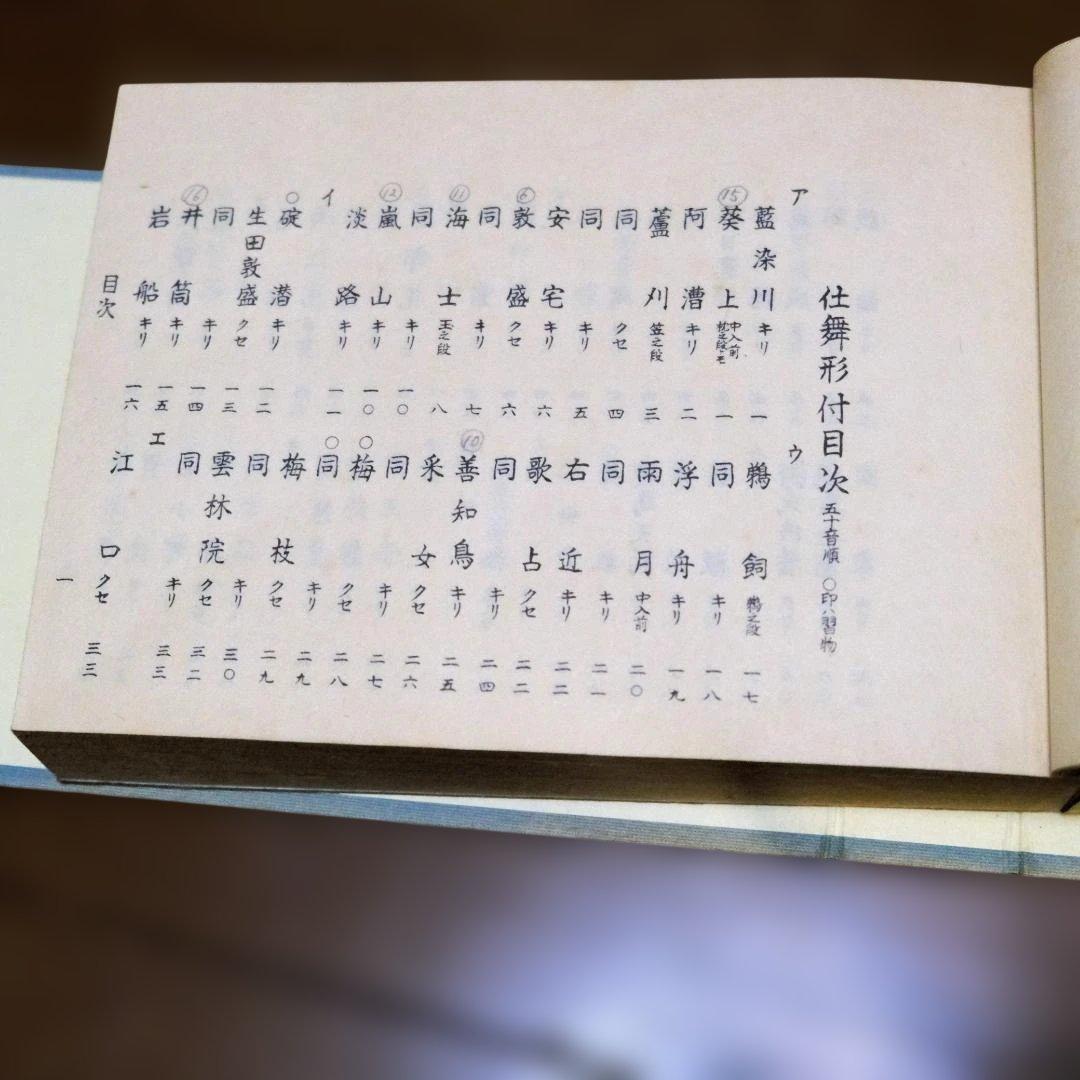 仕舞形付目次 五十音順 〇印ハ習物
ア
藍染川 キリ 一
⑮ 葵上 中入前 枕之段トモ 一
阿漕 キリ 二
蘆刈 笠之段 三
同 クセ 四
同 キリ 五
安宅 キリ 六
⑥ 敦盛 クセ 六
同 キリ 七
⑪ 海士 玉之段 八
同 キリ 一〇
⑫ 嵐山 キリ 一〇
淡路 キリ 一一
イ
〇碇潜 キリ 一二
生田敦盛 クセ 一三
同 キリ 一四
⑯ 井筒 キリ 一五
岩船 キリ 一六
ウ
鵜飼 鵜之段 一七
同 キリ 一八
浮舟 キリ 一九
雨月 中入前 二〇
同 キリ 二一
右近 キリ 二二
歌占 クセ 二二
同 キリ 二四
⑩ 善知鳥 キリ 二五
采女 クセ 二六
同 キリ 二七
〇梅 クセ 二八
〇同 キリ 二九
梅枝 クセ 二九
同 キリ 三〇
雲林院 クセ 三二
同 キリ 三三
エ
江口 クセ 三三
目次 一